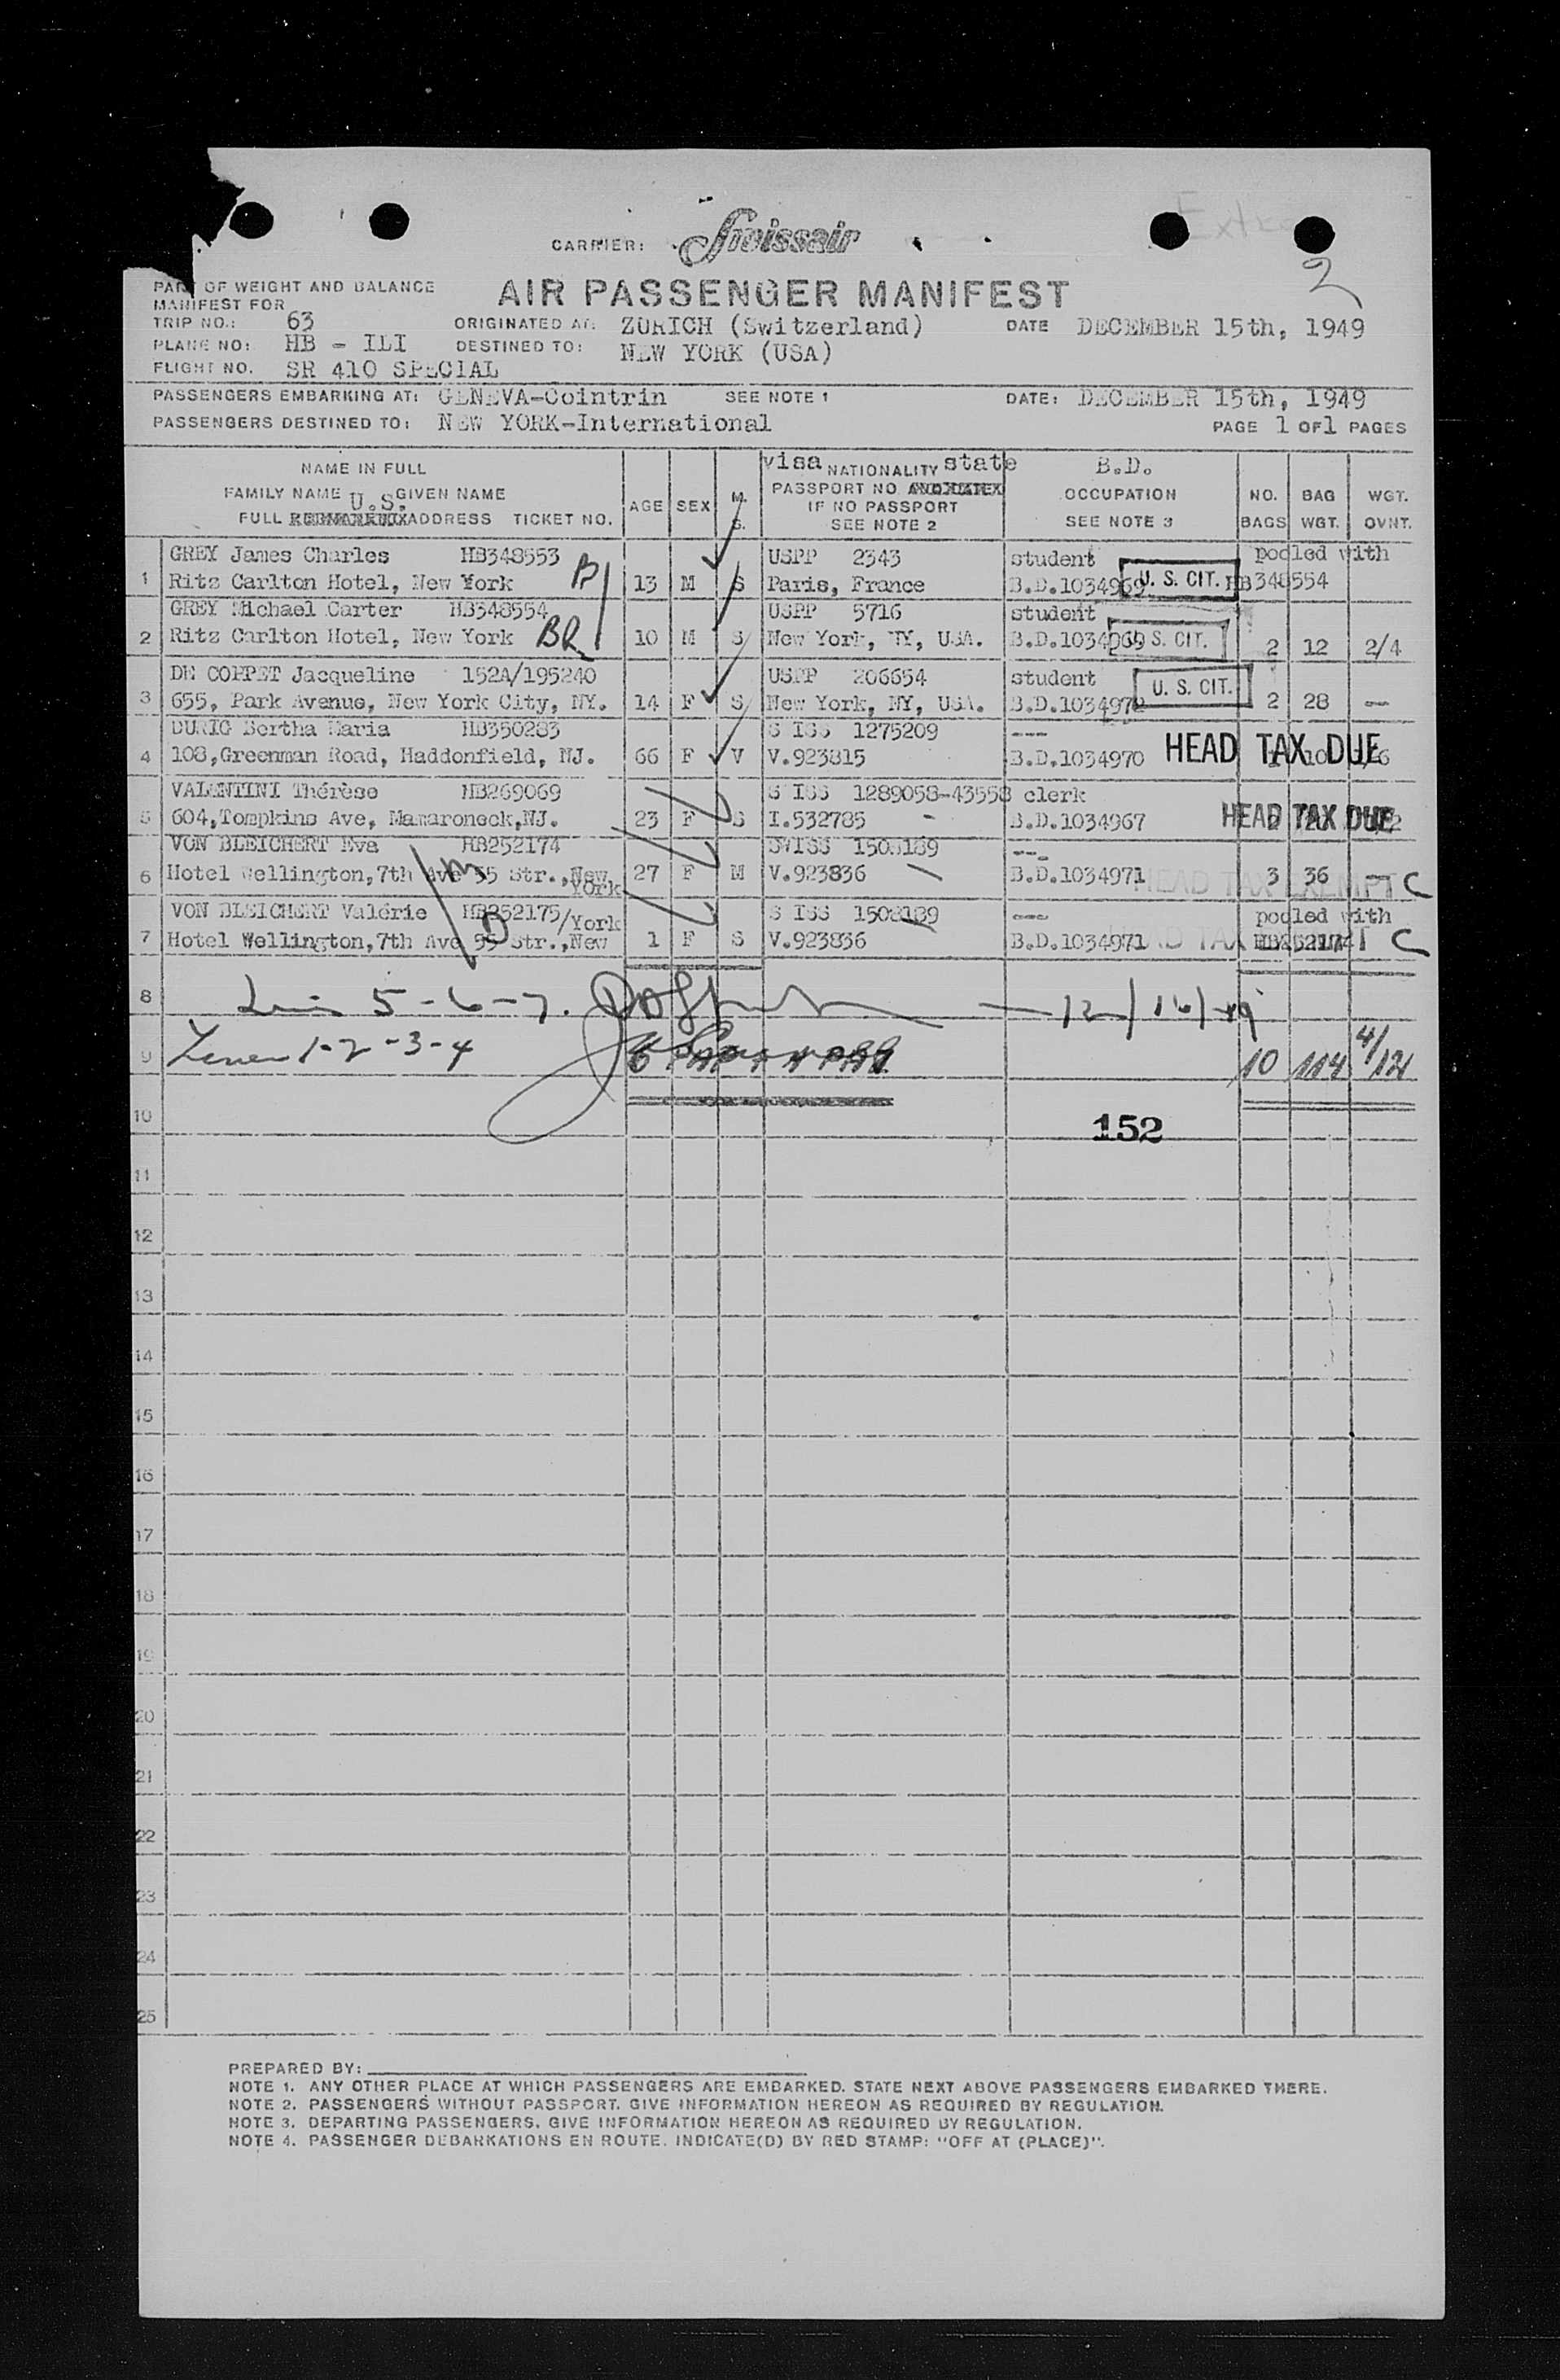 Extra
2
CARRIER: Swissair
AIR PASSENGER MANIFEST
PART OF WEIGHT AND BALANCE
MANIFEST FOR
TRIP NO.: 63 ORIGINATED AT: ZURICH (Switzerland) DATE DECEMBER 15th, 1949
PLANE NO: HB - ILI DESTINED TO: NEW YORK (USA)
FLIGHT NO. SR 410 SPECIAL
PASSENGERS EMBARKING AT: GENEVA-Cointrin SEE NOTE 1 DATE: DECEMBER 15th, 1949
PASSENGERS DESTINED TO: NEW YORK-International PAGE 1 OF 1 PAGES
NAME IN FULL visa NATIONALITY state B.D.
FAMILY NAME U.S. GIVEN NAME AGE SEX M. PASSPORT NO. OCCUPATION NO. BAG WGT.
FULL ADDRESS TICKET NO. S. IF NO PASSPORT SEE NOTE 2 SEE NOTE 3 BAGS WGT. OVNT.
GREY James Charles HB348553 USPP 2343 student pooled with
1 Ritz Carlton Hotel, New York B 13 M S Paris, France B.D.1034969 U. S. CIT. HB348554
GREY Michael Carter HB348554 USPP 5716 student
2 Ritz Carlton Hotel, New York BR 10 M S New York, NY, USA. B.D.1034969 U. S. CIT. 2 12 2/4
DE COPPET Jacqueline 152A/195240 USPP 206654 student
3 655, Park Avenue, New York City, NY. 14 F S New York, NY, USA. B.D.1034972 U. S. CIT. 2 28 —
DURIG Bertha Maria HB350283 S ISS 1275209 ---
4 108,Greenman Road, Haddonfield, NJ. 66 F V V.923815 B.D.1034970 HEAD TAX DUE
VALENTINI Thérèse HB269069 S ISS 1289058-43558 clerk
5 604,Tompkins Ave, Mamaroneck,NJ. 23 F S I.532785 - B.D.1034967 HEAD TAX DUE
VON BLEICHERT Eva HB252174 SWISS 1508189 ---
6 Hotel Wellington,7th Ave 55 Str.,New York 27 F M V.923836 B.D.1034971 HEAD TAX EXEMPT 3 36 — C
VON BLEICHERT Valérie HB252175/York S ISS 1508189 --- pooled with
7 Hotel Wellington,7th Ave 55 Str.,New 1 F S V.923836 B.D.1034971 HEAD TAX HB252174 C
8 5-6-7. 12/16/49
9 1-2-3-4 10 114 4/12
10
152
11
12
13
14
15
16
17
18
19
20
21
22
23
24
25
PREPARED BY:
NOTE 1. ANY OTHER PLACE AT WHICH PASSENGERS ARE EMBARKED. STATE NEXT ABOVE PASSENGERS EMBARKED THERE.
NOTE 2. PASSENGERS WITHOUT PASSPORT. GIVE INFORMATION HEREON AS REQUIRED BY REGULATION.
NOTE 3. DEPARTING PASSENGERS. GIVE INFORMATION HEREON AS REQUIRED BY REGULATION.
NOTE 4. PASSENGER DEBARKATIONS EN ROUTE. INDICATE(D) BY RED STAMP: "OFF AT (PLACE)".